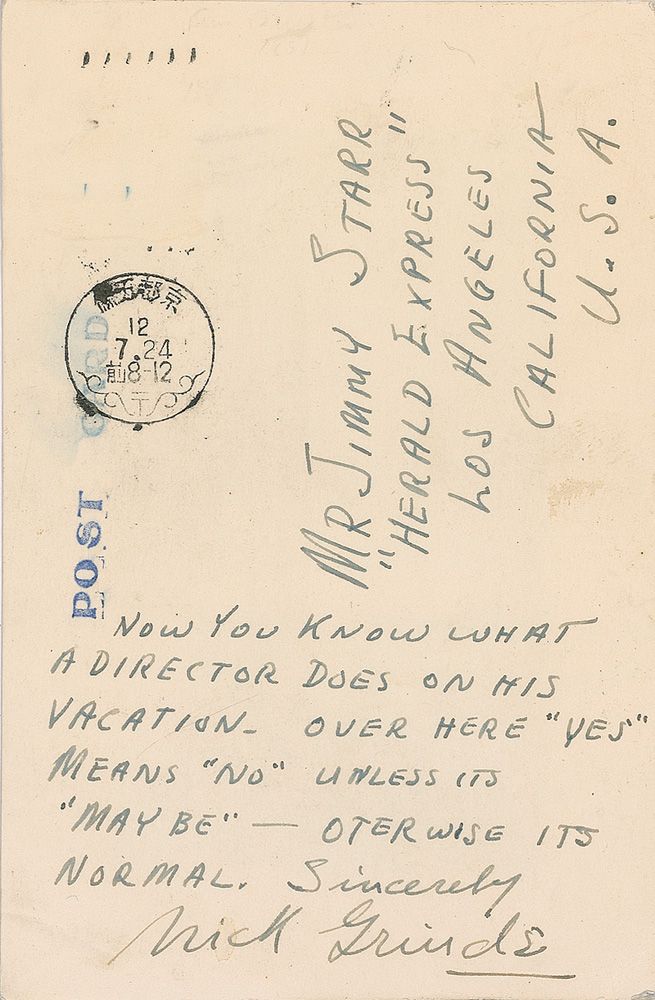 POST CARD
都京
12
7.24
前8-12
MR JIMMY STARR
"HERALD EXPRESS"
LOS ANGELES
CALIFORNIA
U.S.A.
NOW YOU KNOW WHAT
A DIRECTOR DOES ON HIS
VACATION- OVER HERE "YES"
MEANS "NO" UNLESS ITS
"MAYBE" — OTERWISE ITS
NORMAL. Sincerely
Nick Grinde